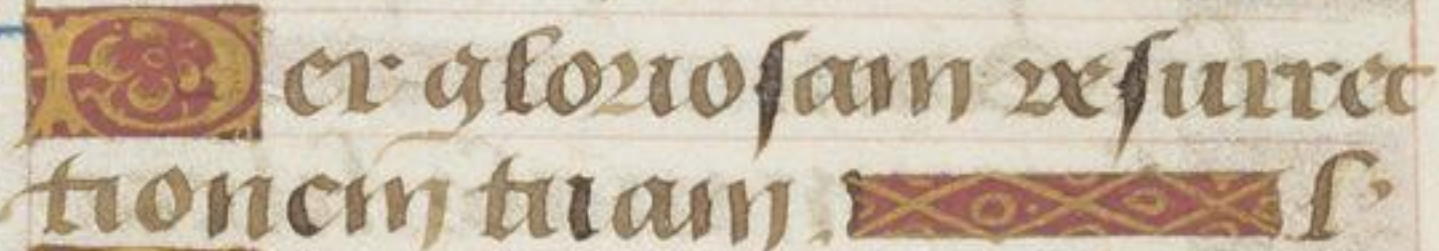 Per gloriosam resurrec
tionem tuam. l'